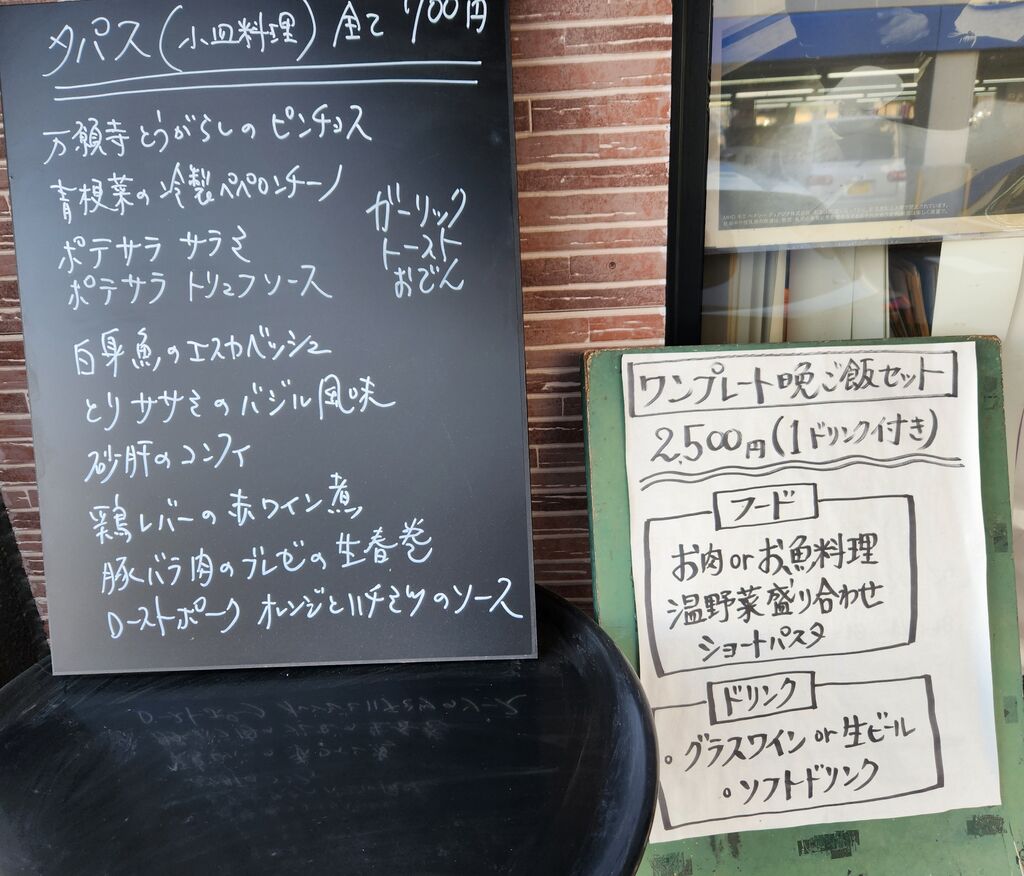 タパス(小皿料理) 全て 700円
万願寺とうがらしの ピンチョス
青梗菜の冷製ペペロンチーノ
ポテサラ サラミ
ポテサラ トリュフソース
ガーリック
トースト
おでん
白身魚のエスカベッシュ
とりササミのバジル風味
砂肝のコンフィ
鶏レバーの赤ワイン煮
豚バラ肉のブレゼの生春巻
ローストポーク オレンジとハチミツのソース
ワンプレート晩ご飯セット
2,500円(1ドリンク付き)
フード
お肉orお魚料理
温野菜盛り合わせ
ショートパスタ
ドリンク
。グラスワインor生ビール
。ソフトドリンク